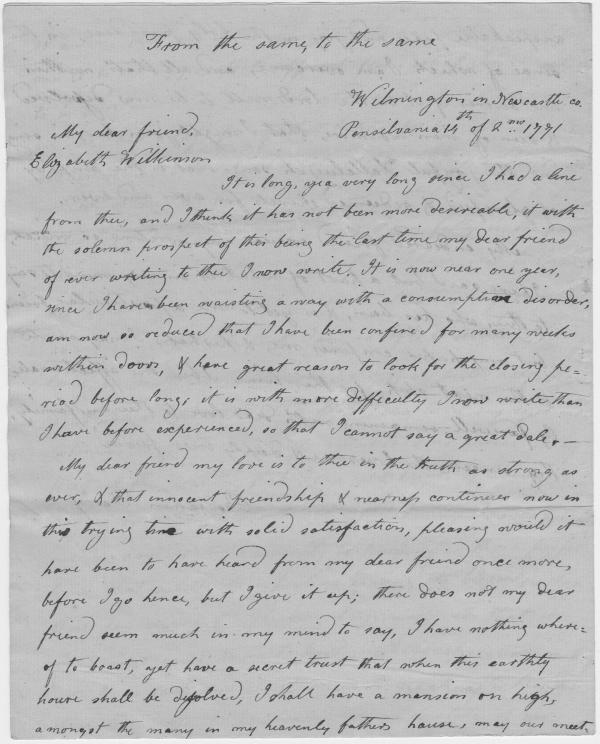 From the same, to the same
Wilmington in Newcastle co.
My dear friend. Pensilvania 14th of 2 mo 1771
Elizabeth Wilkinson
It is long, yea very long since I had a line
from thee, and I think it has not been more desireable, it with
the solemn prospect of this being the last time my dear friend
of ever writing to thee I now write. It is now near one year,
since I have been waisting a way with a consumptive disorder,
am now so reduced that I have been confined for many weeks
within doors, & have great reason to look for the closing pe=
riod before long, it is with more difficulty I now write than
I have before experienced, so that I cannot say a great dale. —
My dear friend my love is to thee in the truth as strong as
ever, & that innocent friendship & nearness continues now in
this trying time with solid satisfaction, pleasing would it
have been to have heard from my dear friend once more,
before I go hence, but I give it up; there does not my dear
friend seem much in my mind to say, I have nothing where=
of to boast, yet have a secret trust that when this earthly
house shall be disolved, I shall have a mansion on high,
amongst the many in my heavenly fathers house, may our meet-